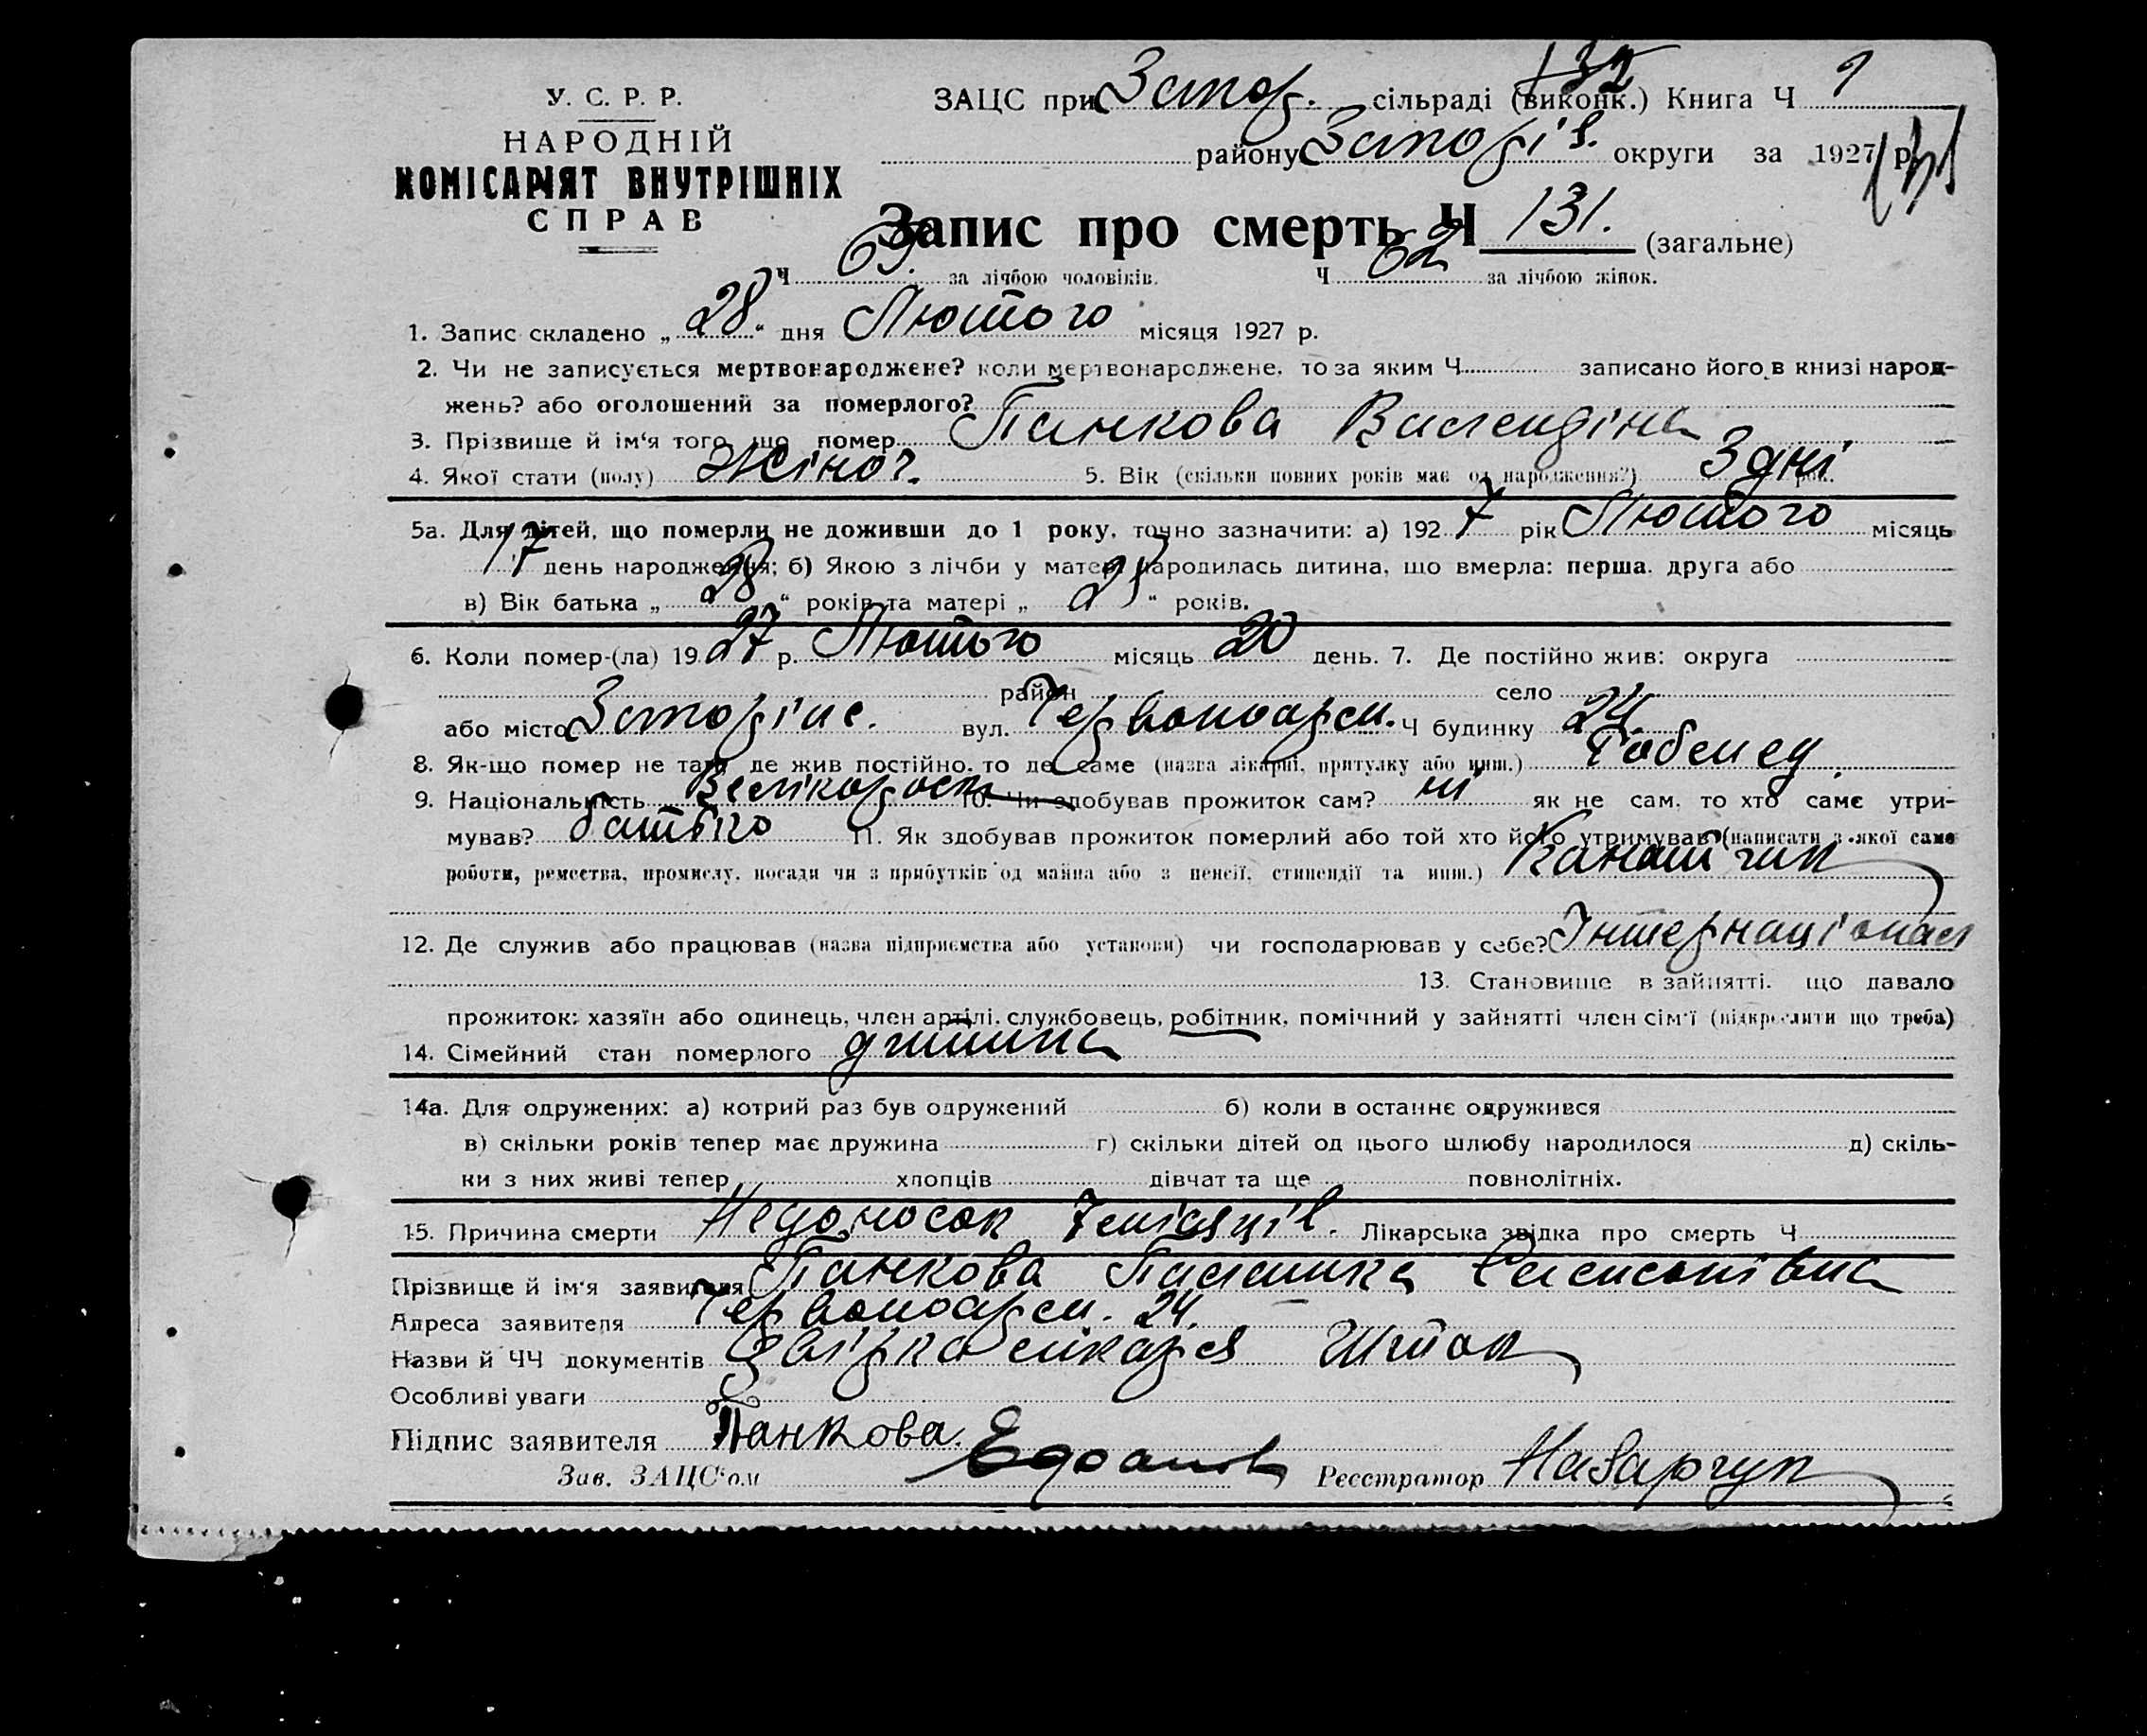 У. С. Р. Р.
НАРОДНІЙ
КОМІСАРІЯТ ВНУТРІШНІХ
СПРАВ
ЗАЦС при Запор. сільраді (виконк.) Книга Ч 1
132
району Запоріз. округи за 1927 р.
131
Запис про смерть Ч 131. (загальне)
Ч 69. за лічбою чоловіків. Ч 62 за лічбою жінок.
1. Запис складено „ 28 “ дня Лютого місяця 1927 р.
2. Чи не записується мертвонароджене? коли мертвонароджене, то за яким Ч записано його в книзі народ-
жень? або оголошений за померлого?
3. Прізвище й ім'я того, що помер Панкова Валендіна
4. Якої стати (полу) Жіноч. 5. Вік (скільки повних років має од народження?) 3 дні рок.
5а. Для дітей, що померли не доживши до 1 року, точно зазначити: а) 192 7 рік Лютого місяць
17 день народження; б) Якою з лічби у матері народилась дитина, що вмерла: перша, друга або
в) Вік батька „ 28 “ років та матері „ 23 “ років.
6. Коли помер-(ла) 19 27 р. Лютого місяць 20 день. 7. Де постійно жив: округа
район село
або місто Запоріже. вул. Червоноарм. Ч будинку 24
8. Як-що помер не там, де жив постійно, то де саме (назва лікарні, притулку або инш.)
9. Національність Велікорост 10. Чи здобував прожиток сам? ні як не сам, то хто саме утри-
мував? батько 11. Як здобував прожиток померлий або той хто його утримував (написати з якої саме
роботи, ремества, промислу, посади чи з прибутків од майна або з пенсії, стипендії та инш.) Канатчик
12. Де служив або працював (назва підприємства або установи) чи господарював у себе? Інтернаціонал
13. Становище в зайнятті, що давало
прожиток: хазяїн або одинець, член артілі, службовець, робітник, помічний у зайнятті член сім'ї (підкреслити що треба)
14. Сімейний стан померлого дитина
14а. Для одружених: а) котрий раз був одружений б) коли в останнє одружився
в) скільки років тепер має дружина г) скільки дітей од цього шлюбу народилося д) скіль-
ки з них живі тепер хлопців дівчат та ще повнолітніх.
15. Причина смерти Недоносок 7 місяців. Лікарська звідка про смерть Ч
Прізвище й ім'я заявителя Панкова Палашка
Адреса заявителя Червоноарм. 24.
Назви й ЧЧ документів Звідка лікаря
Особливі уваги
Підпис заявителя Панкова.
Зав. ЗАЦС'ом Реєстратор Назарчук